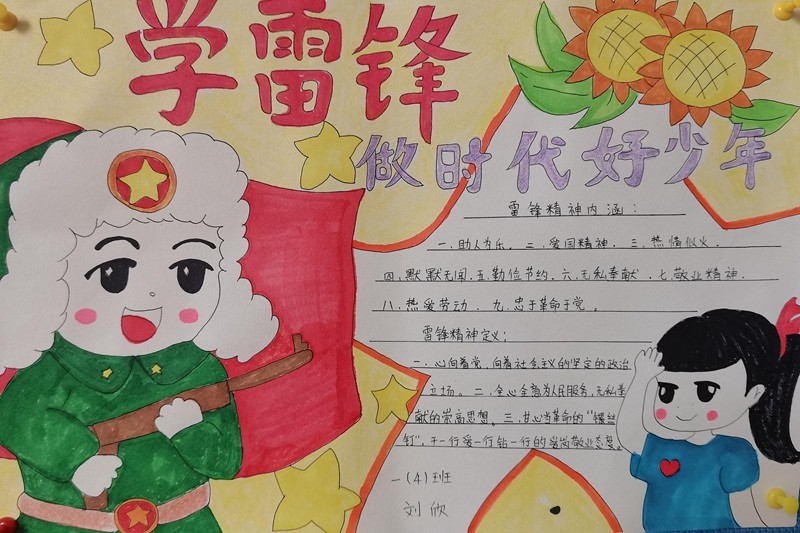 学雷锋
做时代好少年
雷锋精神内涵：
一.助人为乐。二.爱国精神.三.热情似火.
四.默默无闻.五.勤俭节约.六.无私奉献.七.敬业精神.
八.热爱劳动.九.忠于革命于党。
雷锋精神定义；
一.心向着党，向着社会主义的坚定的政治
立场。二.全心全意为人民服务，无私奉
献的崇高思想。三.甘心当革命的“螺丝
钉”，干一行爱一行钻一行的爱岗敬业态度。
一(4)班
刘欣